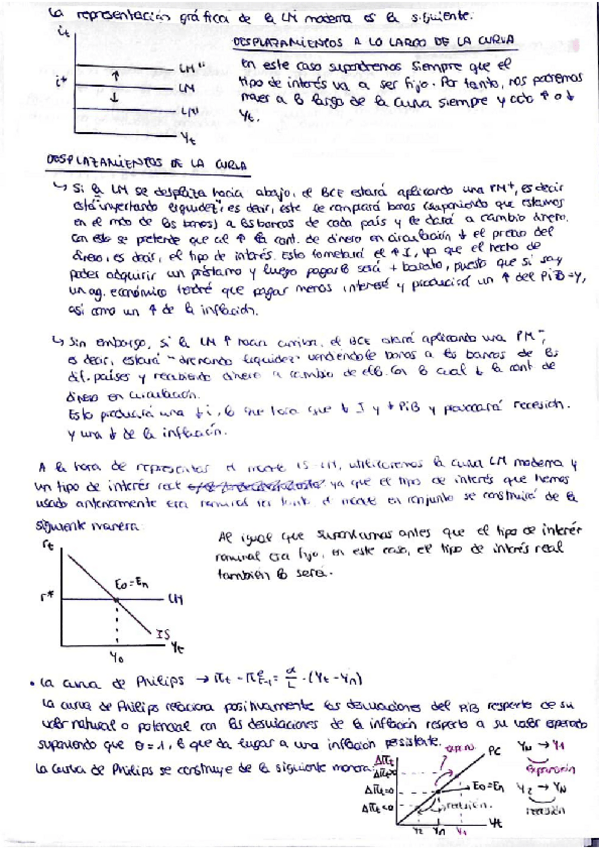 La representación gráfica de la LM moderna es la siguiente:
it
DESPLAZAMIENTOS A LO LARGO DE LA CURVA
LM''
i*
LM
LM'
Yt
En este caso supondremos siempre que el
tipo de interés va a ser fijo. Por tanto, nos podremos
mover a lo largo de la curva siempre y cdo ↑ o ↓
Yt.
DESPLAZAMIENTOS DE LA CURVA
↳ Si la LM se desplaza hacia abajo, el BCE estará aplicando una PM⁺, es decir
está "inyectando liquidez", es decir, este se comprará bonos (suponiendo que estamos
en el mdo de los bonos) a los bancos de cada país y le dará a cambio dinero.
Con esto se pretende que al ↑ la cant. de dinero en circulación ↓ el precio del
dinero, es decir, el tipo de interés. Esto fomentará el ↑ I, ya que el hecho de
poder adquirir un préstamo y luego pagarlo será + barato, puesto que si soy
un ag. económico tendré que pagar menos interés y producirá un ↑ del PiB=Y,
así como un ↑ de la inflación.
↳ Sin embargo, si la LM ↑ hacia arriba, el BCE estará aplicando una PM⁻,
es decir, estará "drenando liquidez" vendiéndole bonos a los bancos de los
dif. países y recibiendo dinero a cambio de ello. Con lo cual ↓ la cant. de
dinero en circulación.
Esto producirá una i, lo que hará que ↓ I y ↓ PiB y provocará recesión.
y una ↓ de la inflación.
A la hora de representar el IS-LM, utilizaremos la curva LM moderna y
un tipo de interés real ya que el tipo de interés que hemos
usado anteriormente era nominal el en conjunto se construirá de la
siguiente manera:
rt
Al igual que suponíamos antes que el tipo de interés
nominal era fijo, en este caso, el tipo de interés real
también lo será.
E0=En
r*
LM
IS
Y0
Yt
• La curva de Philips → πt - πᵉt-1 = α/L · (Yt - Yn)
La curva de Philips relaciona positivamente las desviaciones del PiB respecto de su
valor natural o potencial con las desviaciones de la inflación respecto a su valor esperado
suponiendo que θ=1, lo que da lugar a una inflación persistente.
La curva de Philips se construye de la siguiente manera:
Δπt
expan.
PC
Δπt>0
Δπt=0
E0=En
Δπt<0
recesión.
Y2
Yn
Y1
Yt
YN → Y1
expansión
Y2 → YN
recesión